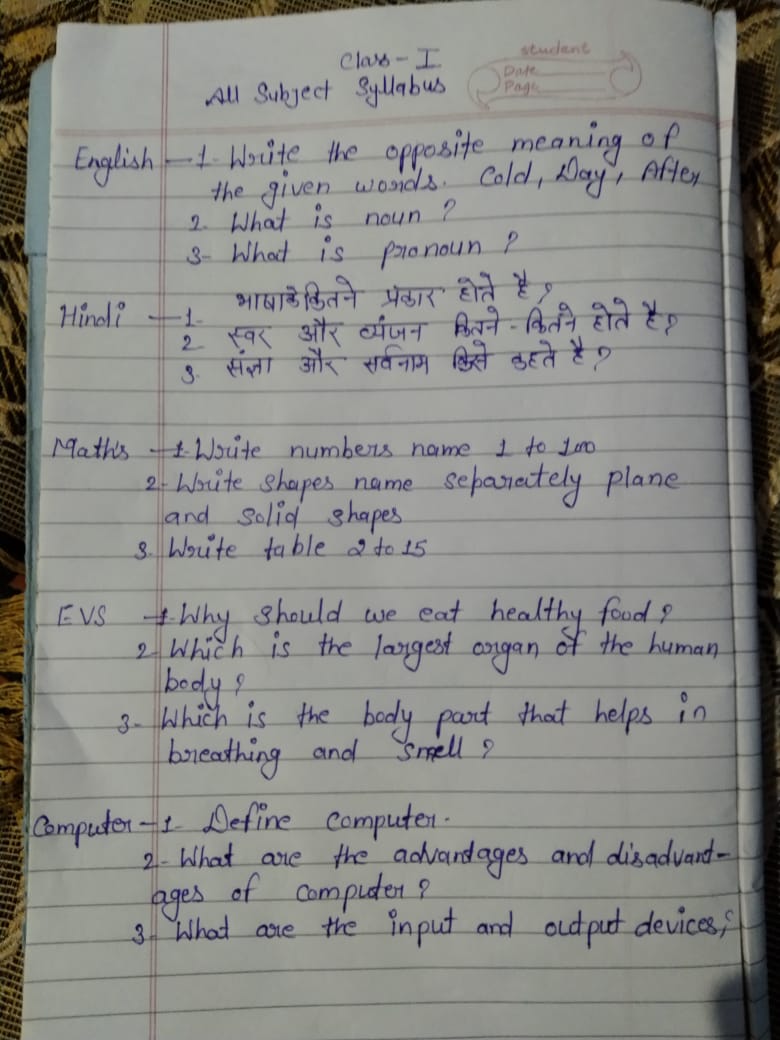 Class - I
student
All Subject Syllabus
Date
Page
English - 1. Write the opposite meaning of
the given words. Cold, Day, After
2. What is noun ?
3- What is pronoun ?
Hindi - 1. भाषा के कितने प्रकार होते है ?
2 स्वर और व्यंजन कितने - कितने होते है ?
3. संज्ञा और सर्वनाम किसे कहते है ?
Math's - 1. Write numbers name 1 to 100
2- Write shapes name separately plane
and solid shapes
3. Write table 2 to 15
EVS - 1. Why should we eat healthy food ?
2 Which is the largest organ of the human
body ?
3- Which is the body part that helps in
breathing and smell ?
Computer - 1- Define computer.
2- What are the advantages and disadvant-
ages of computer ?
3 What are the input and output devices ?